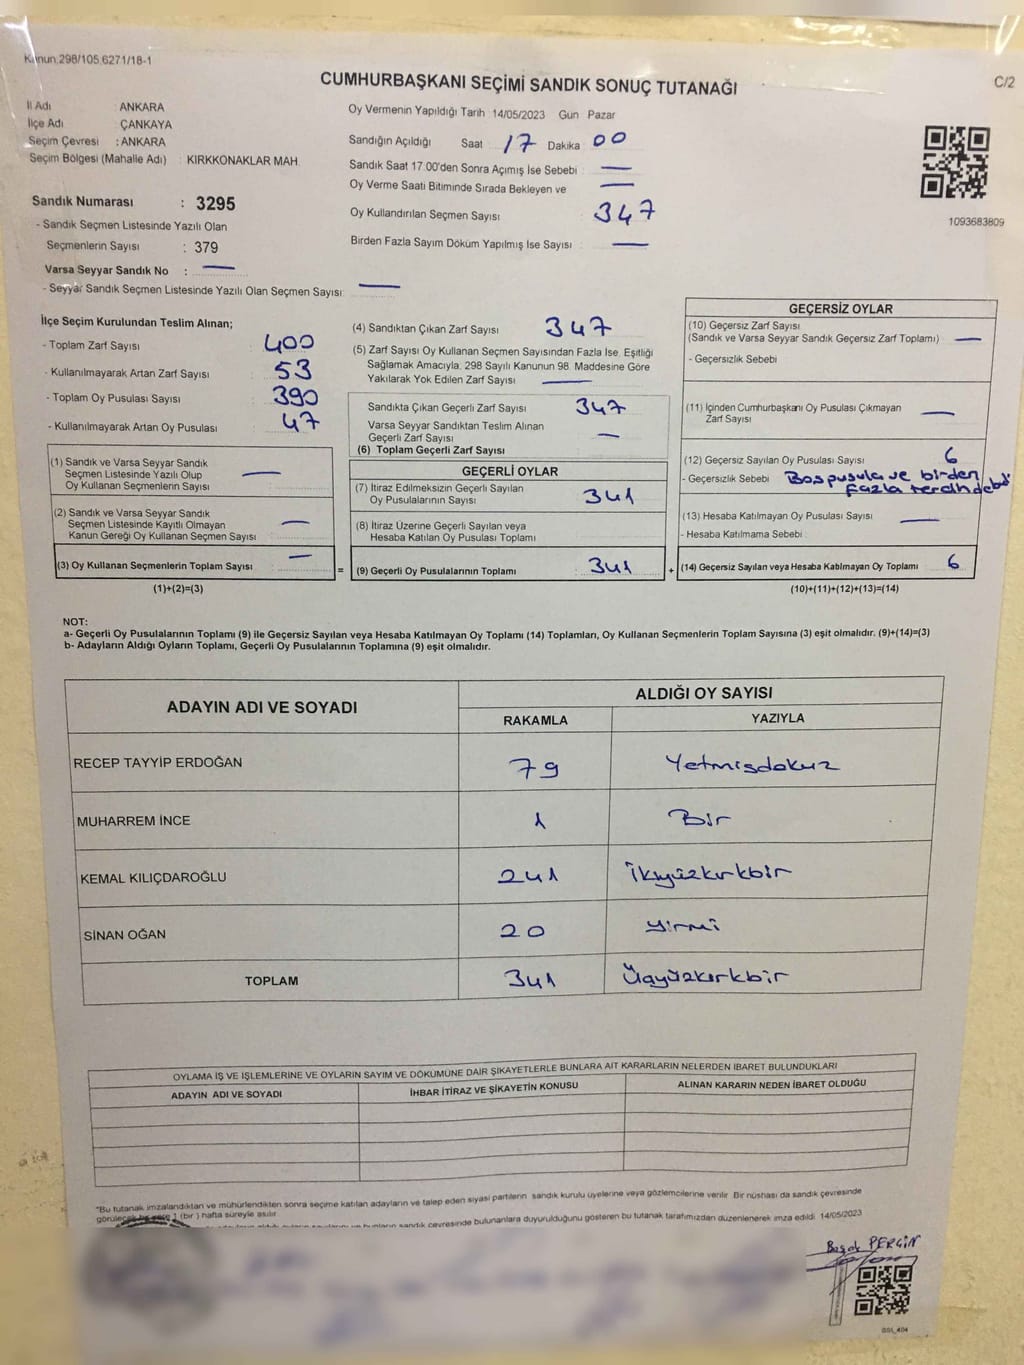 Kanun,298/105,6271/18-1
CUMHURBAŞKANI SEÇİMİ SANDIK SONUÇ TUTANAĞI
C/2
İl Adı : ANKARA
İlçe Adı : ÇANKAYA
Seçim Çevresi : ANKARA
Seçim Bölgesi (Mahalle Adı) : KIRKKONAKLAR MAH.
Sandık Numarası : 3295
- Sandık Seçmen Listesinde Yazılı Olan
Seçmenlerin Sayısı : 379
Varsa Seyyar Sandık No : —
- Seyyar Sandık Seçmen Listesinde Yazılı Olan Seçmen Sayısı: —
Oy Vermenin Yapıldığı Tarih 14/05/2023 Gün Pazar
Sandığın Açıldığı Saat 17 Dakika 00
Sandık Saat 17:00'den Sonra Açımış İse Sebebi : —
Oy Verme Saati Bitiminde Sırada Bekleyen ve —
Oy Kullandırılan Seçmen Sayısı : 347
Birden Fazla Sayım Döküm Yapılmış İse Sayısı : —
1093683809
İlçe Seçim Kurulundan Teslim Alınan;
- Toplam Zarf Sayısı : 400
- Kullanılmayarak Artan Zarf Sayısı : 53
- Toplam Oy Pusulası Sayısı : 390
- Kullanılmayarak Artan Oy Pusulası : 47
(1) Sandık ve Varsa Seyyar Sandık
Seçmen Listesinde Yazılı Olup
Oy Kullanan Seçmenlerin Sayısı —
(2) Sandık ve Varsa Seyyar Sandık
Seçmen Listesinde Kayıtlı Olmayan
Kanun Gereği Oy Kullanan Seçmen Sayısı —
(3) Oy Kullanan Seçmenlerin Toplam Sayısı —
(1)+(2)=(3)
(4) Sandıktan Çıkan Zarf Sayısı 347
(5) Zarf Sayısı Oy Kullanan Seçmen Sayısından Fazla İse, Eşitliği
Sağlamak Amacıyla, 298 Sayılı Kanunun 98. Maddesine Göre
Yakılarak Yok Edilen Zarf Sayısı —
Sandıkta Çıkan Geçerli Zarf Sayısı 347
Varsa Seyyar Sandıktan Teslim Alınan
Geçerli Zarf Sayısı —
(6) Toplam Geçerli Zarf Sayısı
GEÇERLİ OYLAR
(7) İtiraz Edilmeksizin Geçerli Sayılan
Oy Pusulalarının Sayısı : 341
(8) İtiraz Üzerine Geçerli Sayılan veya
Hesaba Katılan Oy Pusulası Toplamı
= (9) Geçerli Oy Pusulalarının Toplamı 341
GEÇERSİZ OYLAR
(10) Geçersiz Zarf Sayısı
(Sandık ve Varsa Seyyar Sandık Geçersiz Zarf Toplamı) —
- Geçersizlik Sebebi
(11) İçinden Cumhurbaşkanı Oy Pusulası Çıkmayan
Zarf Sayısı —
(12) Geçersiz Sayılan Oy Pusulası Sayısı 6
- Geçersizlik Sebebi Boş pusula ve birden
fazla tercih
(13) Hesaba Katılmayan Oy Pusulası Sayısı —
- Hesaba Katılmama Sebebi
+ (14) Geçersiz Sayılan veya Hesaba Katılmayan Oy Toplamı 6
(10)+(11)+(12)+(13)=(14)
NOT:
a- Geçerli Oy Pusulalarının Toplamı (9) ile Geçersiz Sayılan veya Hesaba Katılmayan Oy Toplamı (14) Toplamları, Oy Kullanan Seçmenlerin Toplam Sayısına (3) eşit olmalıdır. (9)+(14)=(3)
b- Adayların Aldığı Oyların Toplamı, Geçerli Oy Pusulalarının Toplamına (9) eşit olmalıdır.
ADAYIN ADI VE SOYADI
ALDIĞI OY SAYISI
RAKAMLA YAZIYLA
RECEP TAYYİP ERDOĞAN 79 Yetmişdokuz
MUHARREM İNCE 1 Bir
KEMAL KILIÇDAROĞLU 241 İkiyüzkırkbir
SİNAN OĞAN 20 Yirmi
TOPLAM 341 Üçyüzkırkbir
OYLAMA İŞ VE İŞLEMLERİNE VE OYLARIN SAYIM VE DÖKÜMÜNE DAİR ŞİKAYETLERLE BUNLARA AİT KARARLARIN NELERDEN İBARET BULUNDUKLARI
ADAYIN ADI VE SOYADI İHBAR İTİRAZ VE ŞİKAYETİN KONUSU ALINAN KARARIN NEDEN İBARET OLDUĞU
"Bu tutanak imzalandıktan ve mühürlendikten sonra seçime katılan adayların ve talep eden siyasi partilerin sandık kurulu üyelerine veya gözlemcilerine verilir. Bir nüshası da sandık çevresinde
görülecek bir yere 1 (bir ) hafta süreyle asılır.
sandık çevresinde bulunanlara duyurulduğunu gösteren bu tutanak tarafımızdan düzenlenerek imza edildi. 14/05/2023
Başak PERÇİN